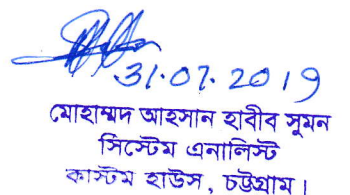 31.07.2019
মোহাম্মদ আহসান হাবীব সুমন
সিস্টেম এনালিস্ট
কাস্টম হাউস, চট্টগ্রাম।